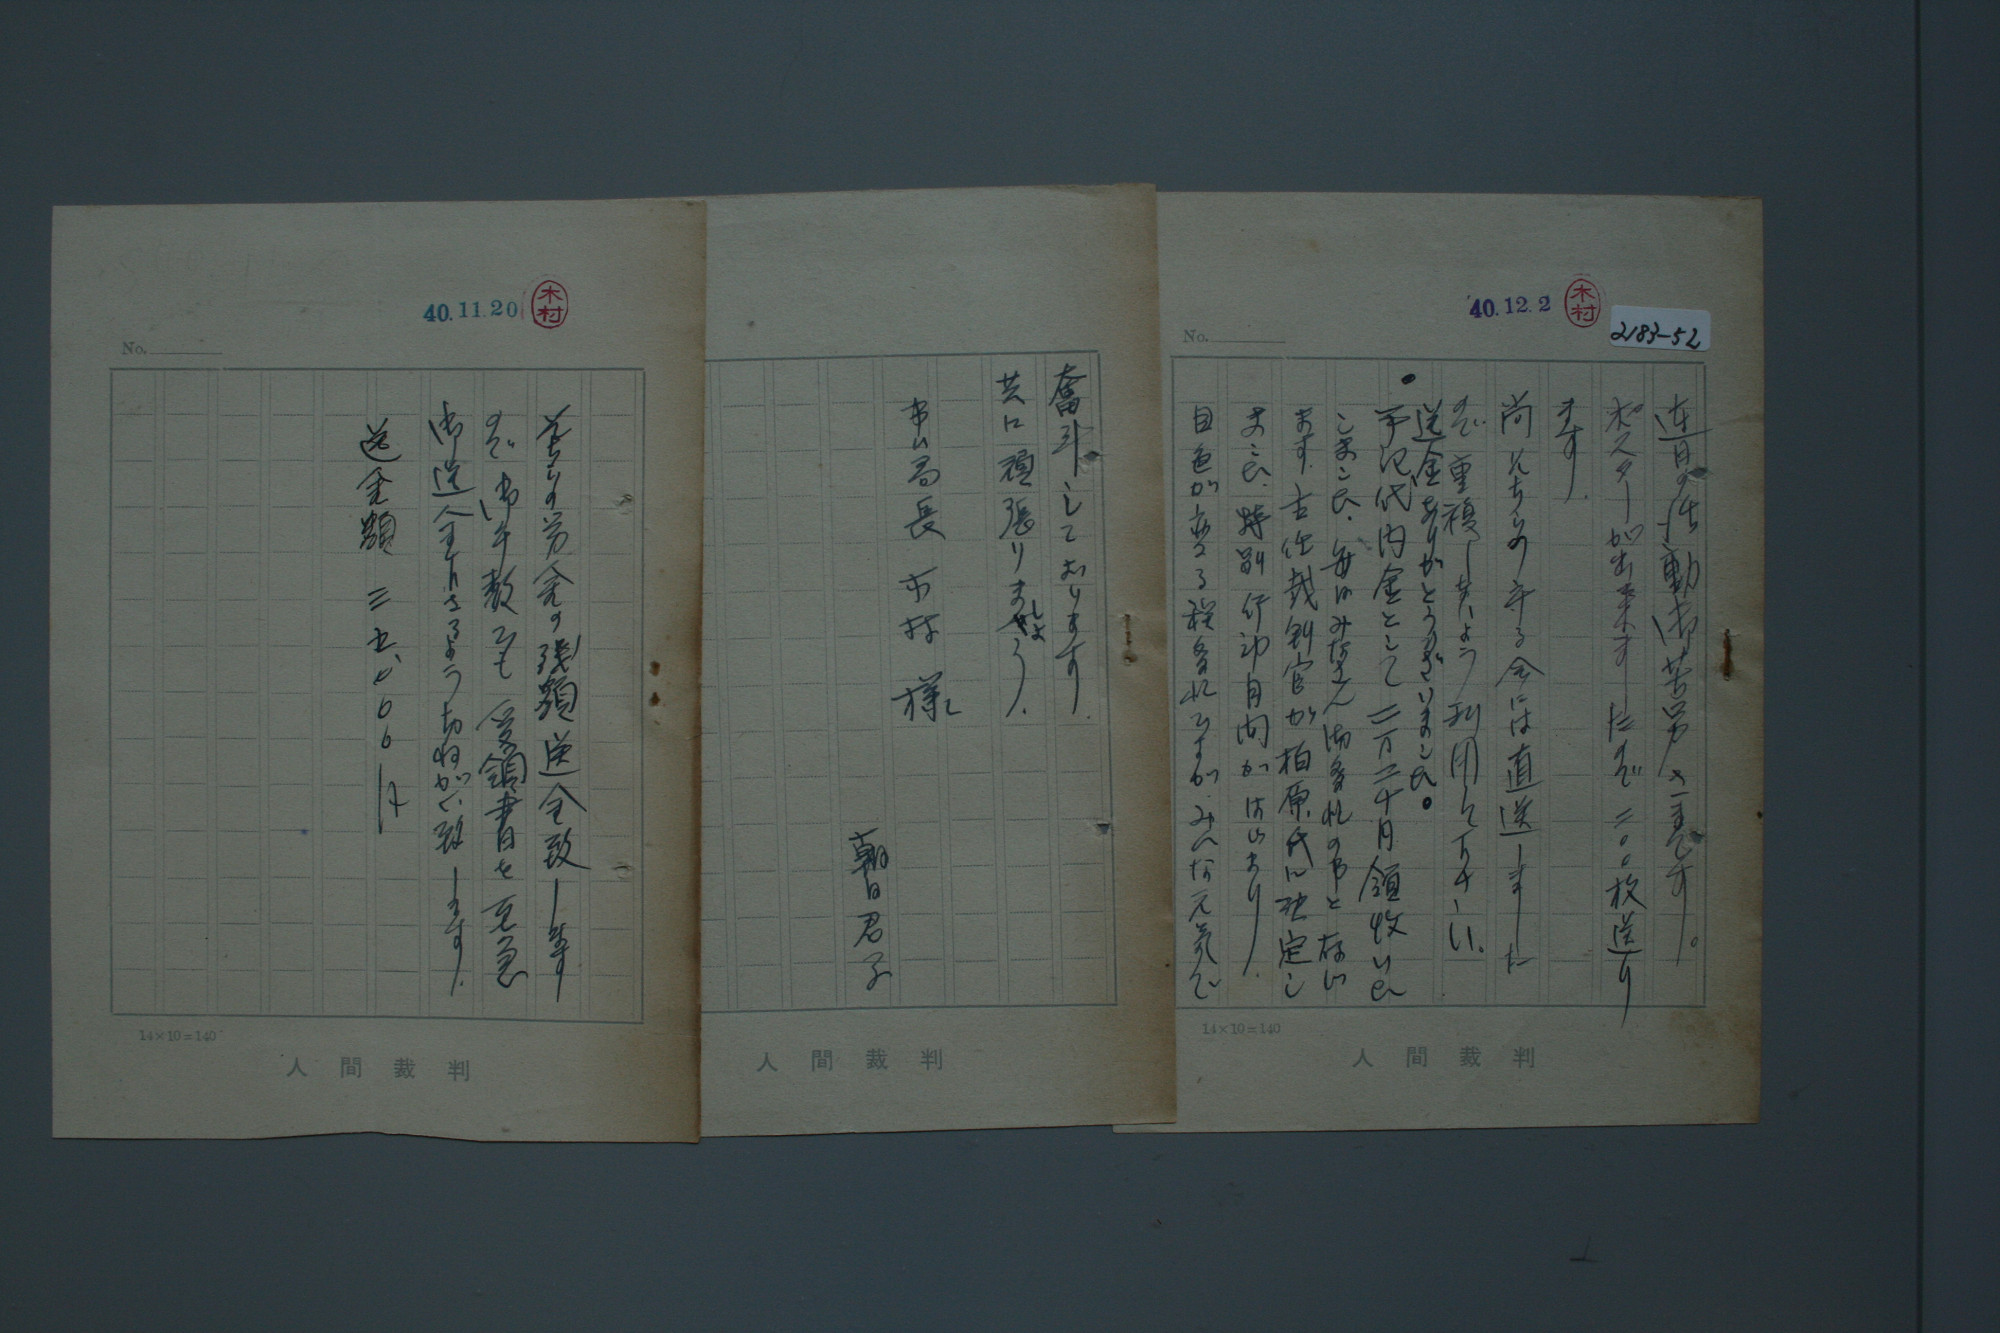 2183-52
40.12.2
木村
No.
連日の活動御苦労さまです。
ポスターが出来ましたので二〇〇枚送り
ます.
尚そちらの年る会には直送しました
ので重複しないよう利用して下さい.
送金ありがとうございました。
手記代内金として二万二千円領収いた
しました.毎日みなさん御多忙の事と存じ
ます.古住裁判官が柏原氏に決定し
ました.特別行動月間がはじまり.
目色が変る程多忙ですが.みんな元気で
14×10=140
人間裁判
奮斗しております.
共に頑張りましょう.
事ム局長 木村 様
朝日君子
人間裁判
40.11.20
木村
No.
そちらの労金の残額送金致します
ので御手数でも受領書を至急
御送金下さるようおねがい致します.
送金額 三五、〇〇〇円
14×10=140
人間裁判